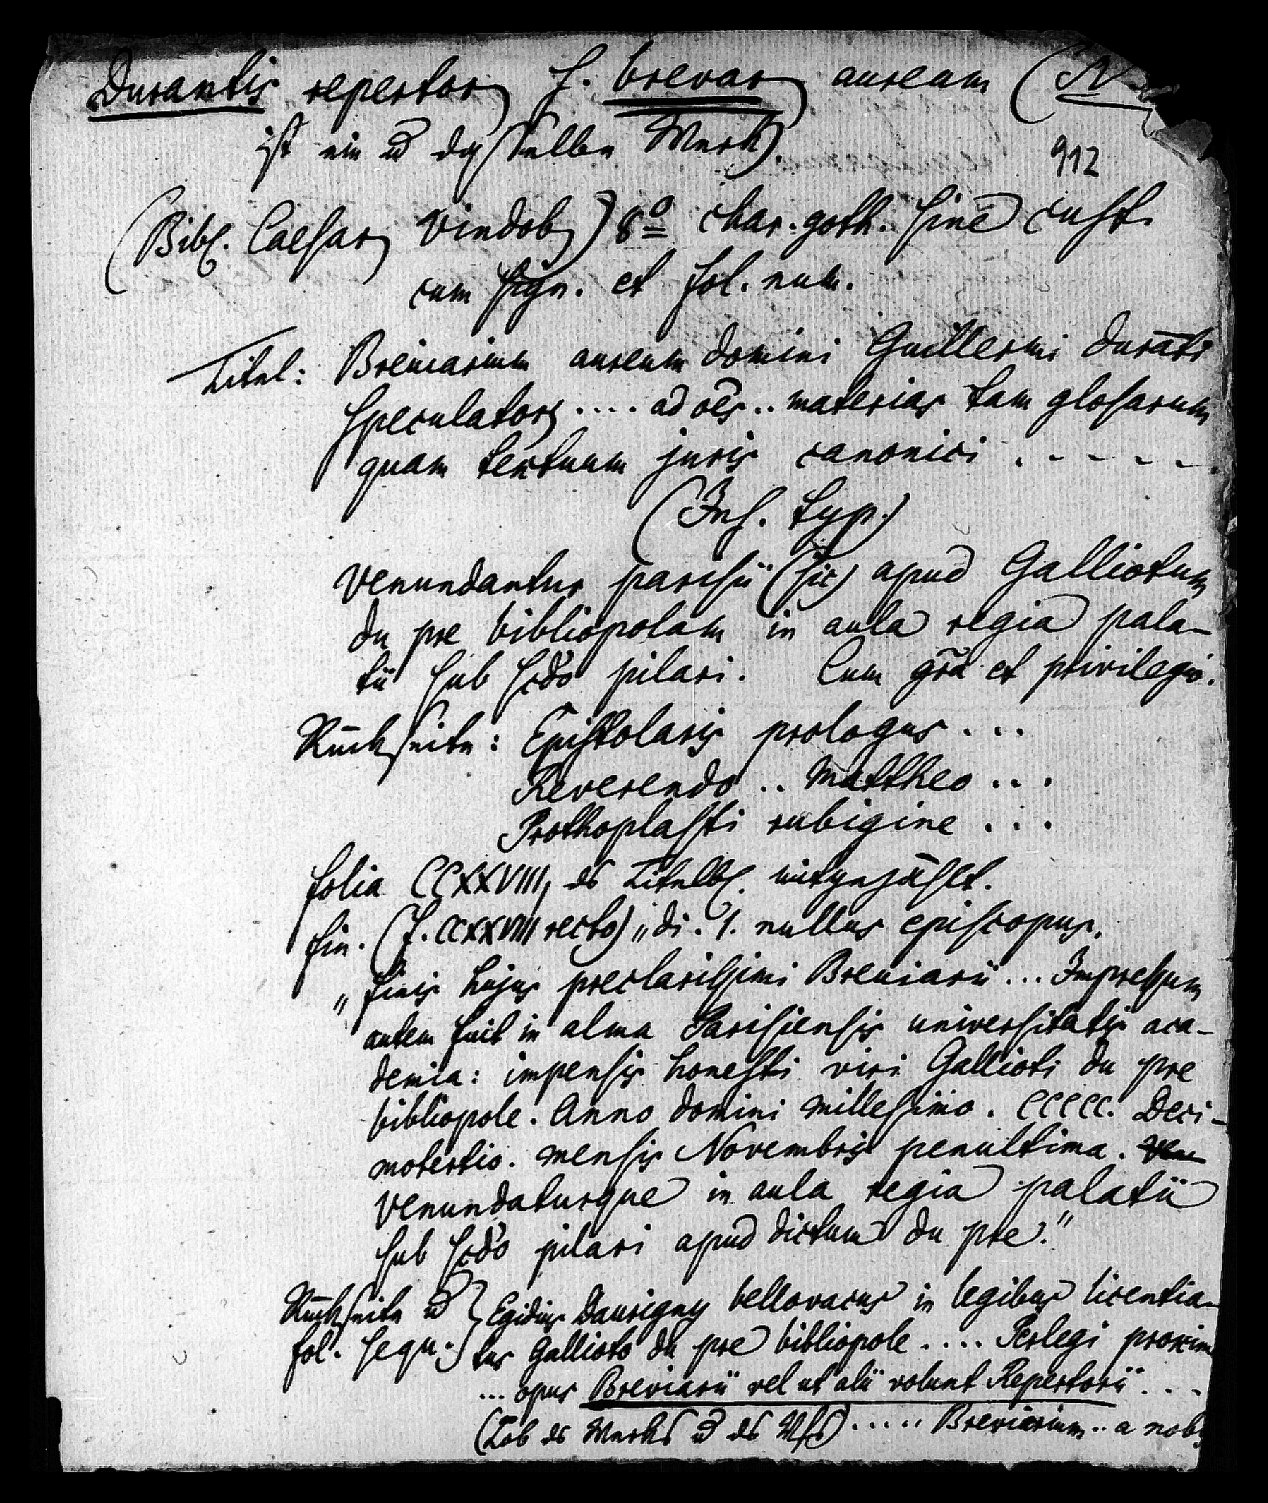 Durantis repertor s. breviar aureum (N
ist ein u dasselbe Werk).
912
(Bibl. Caesar Vindob) 8º char. goth. sine cust.
cum sign. et fol. num.
Titel: Breviarium aureum domini Guillermi durāti
speculator .... ad oēs .. materias tam glosarum
quam textuum juris canonici . - - - - .
(Ins. typ.)
venundantur parisii (sic) apud Galliotum
du pre bibliopolam in aula regia pala-
tii sub scdo pilari. Cum grā et privilegio.
Rückseite: Epistolaris prologus ...
Reverendo .. Mattheo ...
Prothoplasti rubigine ...
folia CCXXVIII, ds Titelbl. mitgezählt.
fin. (f. CCXXVIII recto) „di. 1. nullus episcopus.
„finis hujus preclarissimi Breviarii ... Impressum
autem fuit in alma Parisiensis universitatis aca-
demia: impensis honesti viri Gallioti du pre
bibliopole. Anno domini millesimo. CCCCC. Deci-
motertio. mensis Novembris penultima. ven
venundaturque in aula regia palatii
sub scdo pilari apud dictum du pre."
Rückseite u } Egidius Daurigny bellovacus in legibus licentia-
fol. sequ. } tus Gallioto du pre bibliopole .... Perlegi proxim
... opus Breviarii vel ut alii volunt Repertorii ....
(Lob ds Werks u ds Vfs) ..... Breviarium .. a nob